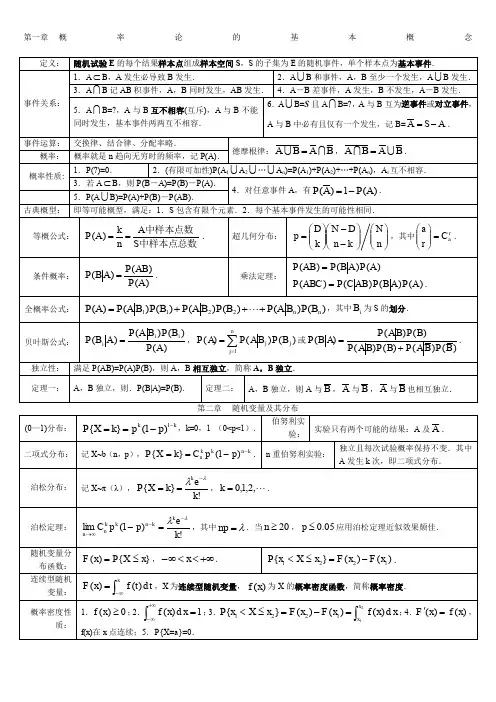 第一章 概 率 论 的 基 本 概 念
定义： 随机试验 E 的每个结果样本点组成样本空间 S，S 的子集为 E 的随机事件，单个样本点为基本事件．
事件关系：
1．A⊂B，A 发生必导致 B 发生． 2．A∪B 和事件，A，B 至少一个发生，A∪B 发生．
3．A∩B 记 AB 积事件，A，B 同时发生，AB 发生． 4．A－B 差事件，A 发生，B 不发生，A－B 发生．
5．A∩B=?，A 与 B 互不相容(互斥)，A 与 B 不能
同时发生，基本事件两两互不相容．
6．A∪B=S 且 A∩B=?，A 与 B 互为逆事件或对立事件，
A 与 B 中必有且仅有一个发生，记 B= A̅ = S－A．
事件运算： 交换律、结合律、分配率略． 德摩根律：\overline{A∪B} = A̅∩B̅，\overline{A∩B} = A̅∪B̅．
概率： 概率就是 n 趋向无穷时的频率，记 P(A)．
概率性质：
1．P(?)=0． 2．(有限可加性)P(A₁∪A₂∪…∪Aₙ)=P(A₁)+P(A₂)+…+P(Aₙ)，Aᵢ互不相容．
3．若 A⊂B，则 P(B－A)=P(B)－P(A)． 4．对任意事件 A，有 P(A̅) = 1－P(A)．
5．P(A∪B)=P(A)+P(B)－P(AB)．
古典概型： 即等可能概型，满足：1．S 包含有限个元素．2．每个基本事件发生的可能性相同．
等概公式： P(A) = k/n = A中样本点数/S中样本点总数． 超几何分布： p = (D k)(N－D n－k)/(N n)，其中 (a r) = C_a^r．
条件概率： P(B|A) = P(AB)/P(A)． 乘法定理： P(AB) = P(B|A)P(A)
P(ABC) = P(C|AB)P(B|A)P(A)．
全概率公式： P(A) = P(A|B₁)P(B₁) + P(A|B₂)P(B₂) + ⋯ + P(A|Bₙ)P(Bₙ)，其中 Bᵢ 为 S 的划分．
贝叶斯公式： P(Bᵢ|A) = P(A|Bᵢ)P(Bᵢ)/P(A)，P(A) = ∑_{j=1}^{n} P(A|Bⱼ)P(Bⱼ) 或 P(B|A) = P(A|B)P(B)/(P(A|B)P(B) + P(A|B̅)P(B̅))．
独立性： 满足 P(AB)=P(A)P(B)，则 A，B 相互独立，简称 A，B 独立．
定理一： A，B 独立，则．P(B|A)=P(B)． 定理二： A，B 独立，则 A 与 B̅，A̅ 与 B，A̅ 与 B̅ 也相互独立．
第二章 随机变量及其分布
(0—1)分布： P{X = k} = p^k(1－p)^{1－k}，k=0，1 （0<p<1）． 伯努利实验： 实验只有两个可能的结果：A 及 A̅．
二项式分布： 记 X~b（n，p），P{X = k} = C_n^k p^k(1－p)^{n－k}． n 重伯努利实验： 独立且每次试验概率保持不变．其中
A 发生 k 次，即二项式分布．
泊松分布： 记 X~π（λ），P{X = k} = λ^k e^{－λ}/k!，k = 0,1,2,⋯．
泊松定理： lim_{n→∞} C_n^k p^k(1－p)^{n－k} = λ^k e^{－λ}/k!，其中 np = λ．当 n ≥ 20，p ≤ 0.05 应用泊松定理近似效果颇佳．
随机变量分布函数： F(x) = P{X ≤ x}，－∞ < x < +∞． P{x₁ < X ≤ x₂} = F(x₂)－F(x₁)．
连续型随机变量： F(x) = ∫_{－∞}^{x} f(t)dt，X 为连续型随机变量，f(x) 为 X 的概率密度函数，简称概率密度．
概率密度性质：
1．f(x) ≥ 0；2．∫_{－∞}^{+∞} f(x)dx = 1；3．P{x₁ < X ≤ x₂} = F(x₂)－F(x₁) = ∫_{x₁}^{x₂} f(x)dx；4．F′(x) = f(x)，
f(x)在 x 点连续；5．P{X=a}=0．